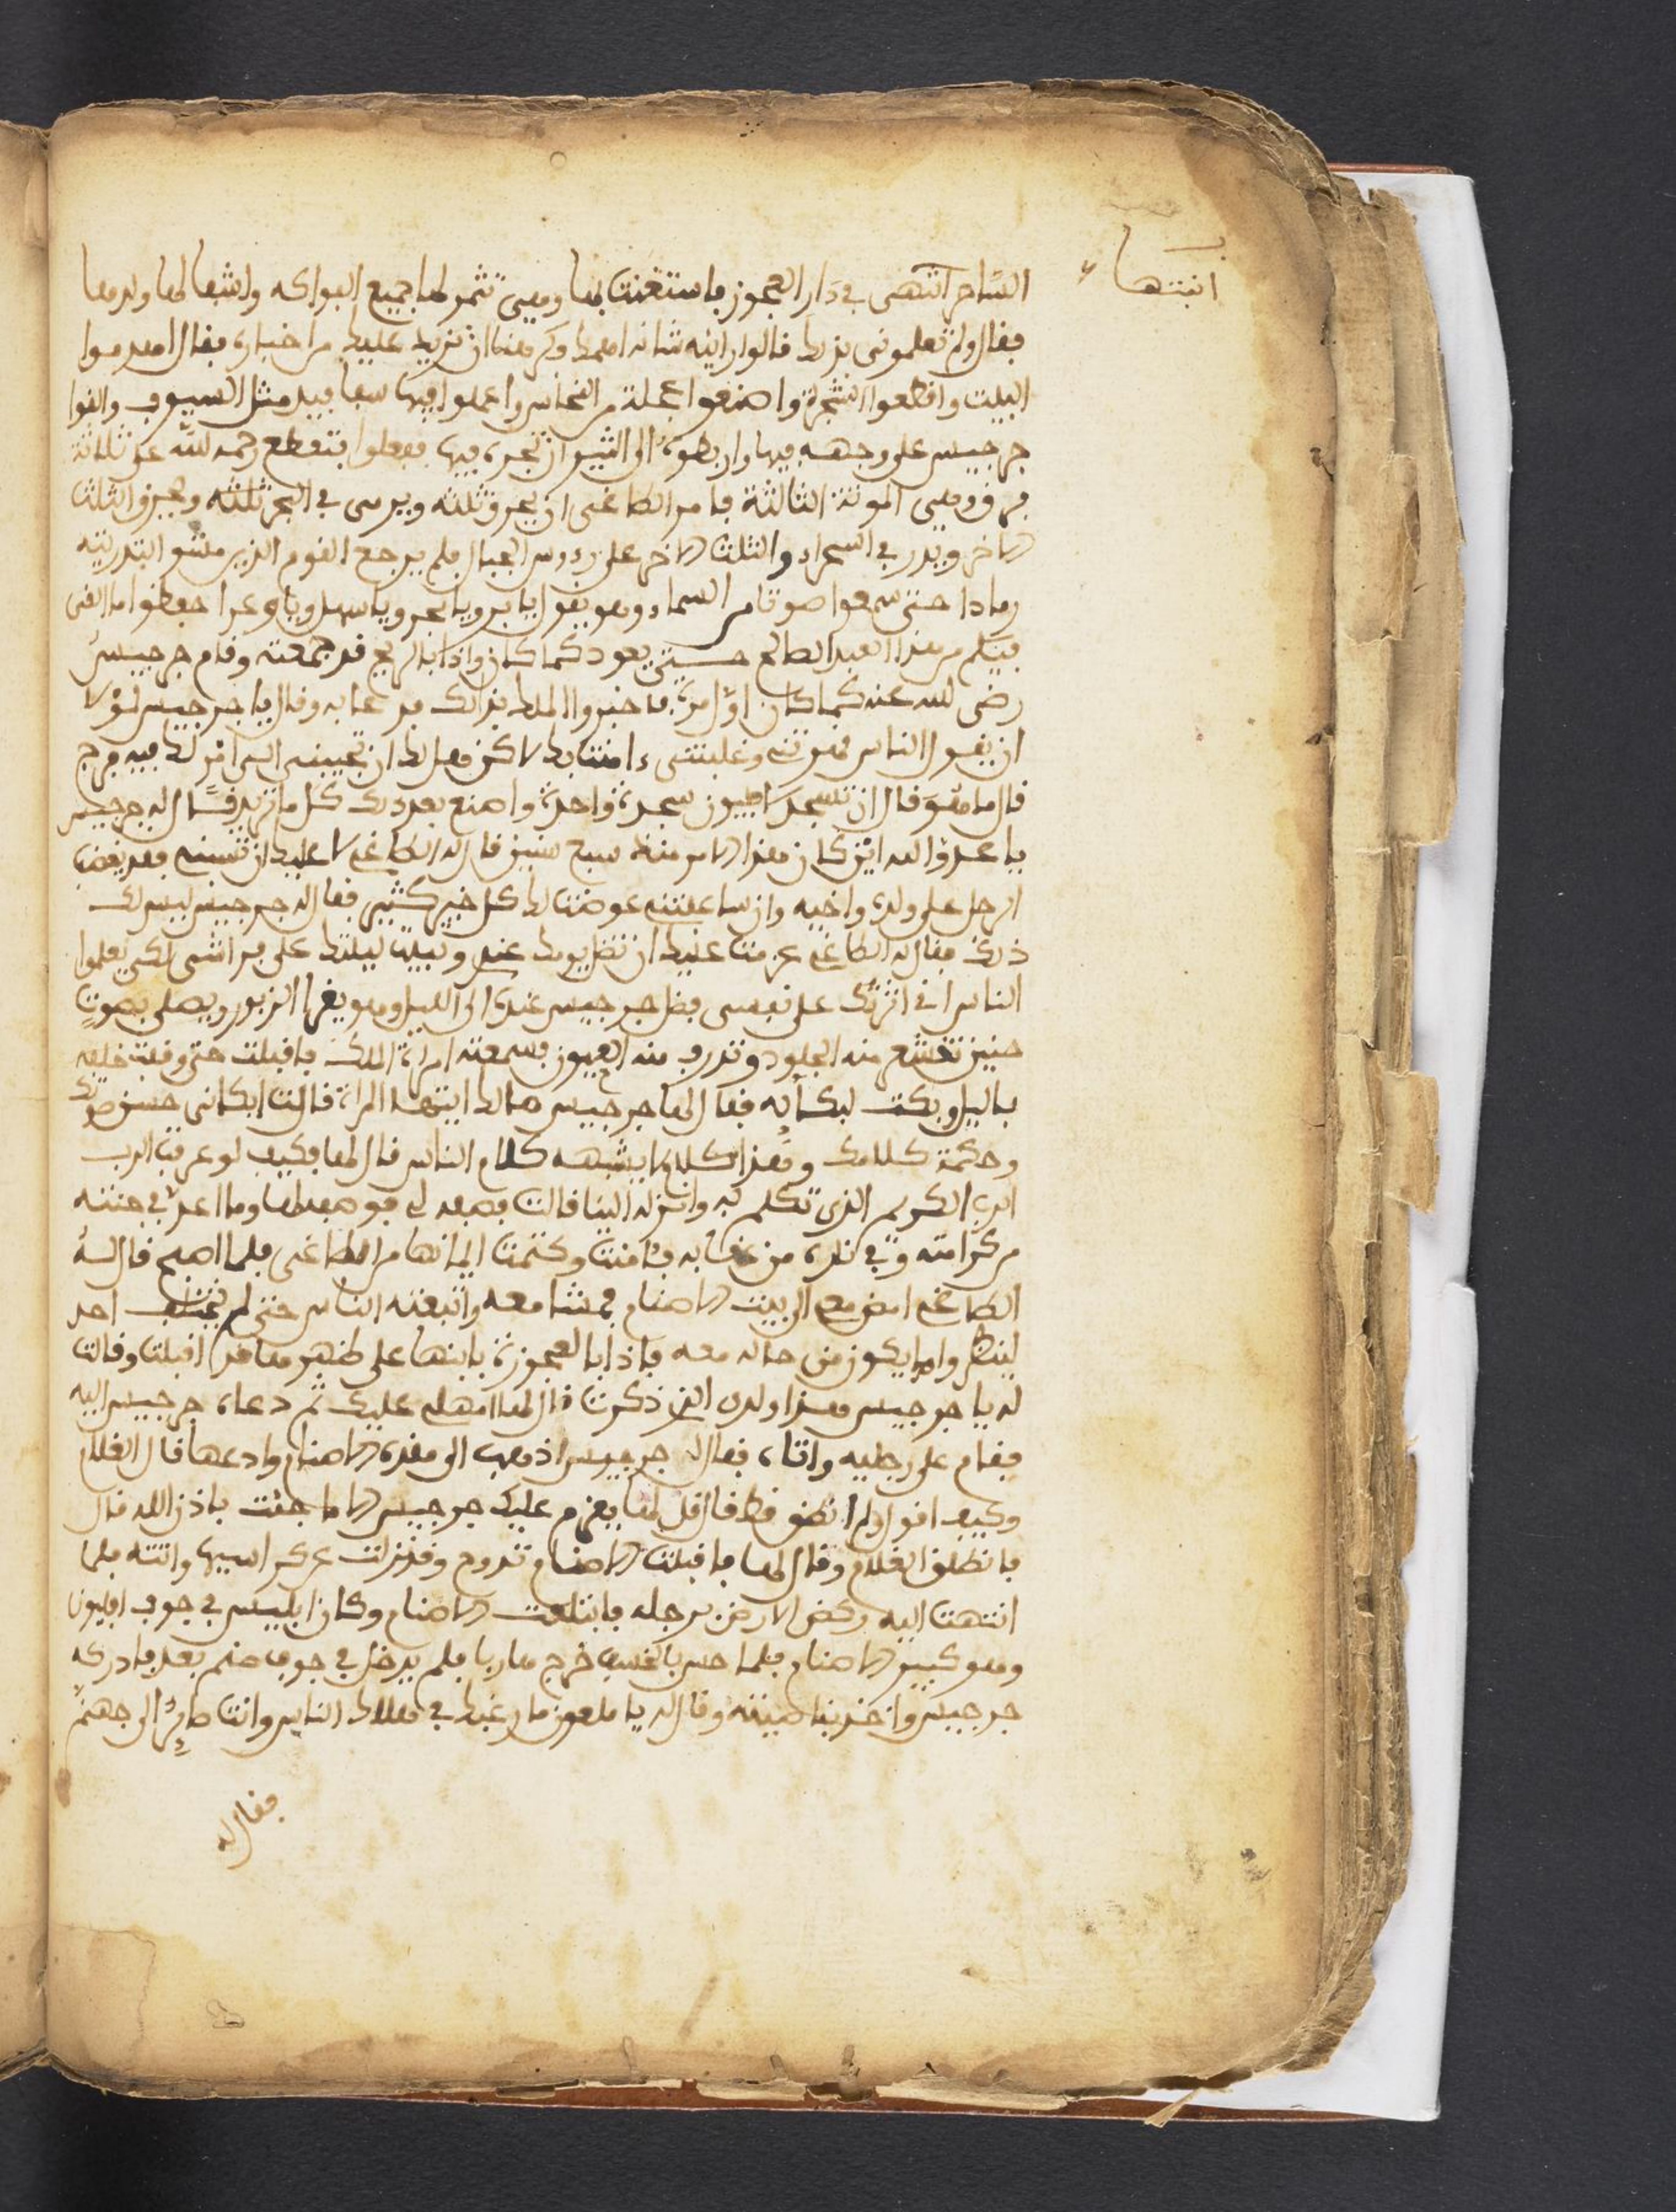 انبتها
الساحر انتهى في دار العجوز فاستغنت بها وهي تثمر لها جميع الفواكه واشفا لها ولدها
فقال ولم تعلموني بذلك قالوا راينه شانه اهمك وكرهنا ان نزيد عليك من اخباره فقال اهدموا
البيت واقطعوا الشجرة واصنعوا عجلة من النحاس واعملوا فيها سفافيد مثل السيوف والقوا
جرجيس على وجهه فيها واربطوه الى الثيران تجره فيها ففعلوا فتقطع رحمه الله على ثلاثة
فرق وهي الموتة الثالثة فامر الطاغي ان يحرق ثلثه ويرمى في البحر ثلثه ويحرق الثلث
الاخر ويذر في الصحراء والثلث الاخر على رءوس الجبال فلم يرجع القوم الذين مشوا لتذريته
رمادا حتى سمعوا صوتا من السماء وهو يقول يا بر ويا بحر ويا سهل ويا وعر احفظوا ما القى
فيكم من هذا العبد الصالح حتى يعود كما كان واذا بالريح قد جمعته وقام جرجيس
رضى الله عنه كما كان اول مرة فاخبروا الملك بذلك فدعا به وقال يا جرجيس لولا
ان يقول الناس قهرتني وغلبتني ءامنت بك لاكن هل لك ان تجيبني الى امر لك فيه فرج
قال ما هو قال ان تسجد لافليون سجدة واحدة واصنع بعد ذلك كل ما تريد قال له جرجيس
يا عدو الله اين كان هذا الامر منذ سبع سنين قال له الطاغي لا عليك ان تنسه فقد يغضب
الرجل على ولده واخيه وان ساعدتني عوضت لك كل خير كثير فقال له جرجيس ليس لك
ذلك فقال له الطاغي عزمت عليك ان تظل يومك عندي وتبيت ليلتك على فراشي لكي يعلموا
الناس اني اثرتك على نفسي فظل جرجيس عنده الى الليل وهو يقرا الزبور ويصلي بصوت
حنين تقشع منه الجلود وتذرف منه العيون فسمعته امراة الملك فاقبلت حتى وقفت خلفه
باليل وبكت لبكائه فقال لها جرجيس مالك ايتها المراة قالت ابكاني حسن صوتك
وحكمة كلامك وهذا كلام لا يشبه كلام الناس قال لها فكيف لو عرفت الرب
الرب الكريم الذي تكلم به وانزله الينا قالت فصفه لي فوصفه لها وما اعد في جنته
من كرامته وفي ناره من عذابه فءامنت وكتمت ايمانها من الطاغي فلما اصبح قال له
الطاغي امض معي الى بيت الاصنام فمشا معه واتبعته الناس حتى لم يتخلف احد
لينظروا ما يكون من حاله معه فاذا بالعجوزة بابنها على ظهرها قد اقبلت وقالت
له يا جرجيس هذا ولدي الذي ذكرت قال لها امهلي عليك ثم دعاه جرجيس اليه
فقام على رجليه واتاه فقال له جرجيس اذهب الى هذه الاصنام وادعها قال الغلام
وكيف اقول ولم انطق قط قال قل لها يعزم عليك جرجيس الا ما جئت باذن الله قال
فانطلق الغلام وقال لها فاقبلت الاصنام تدوح وقد نزلت عن كراسيها واتته فلما
انتهت اليه ركض الارض برجله فابتلعت الاصنام وكان ابليس في جوف افليون
وهو كبير الاصنام فلما احس بالخسف خرج هاربا فلم يدخل في جوف صنم بعد فادركه
جرجيس واخذ بناصيته وقال له يا ملعون ما رغبك في هلاك الناس وانت صائر الى جهنم
فقال له